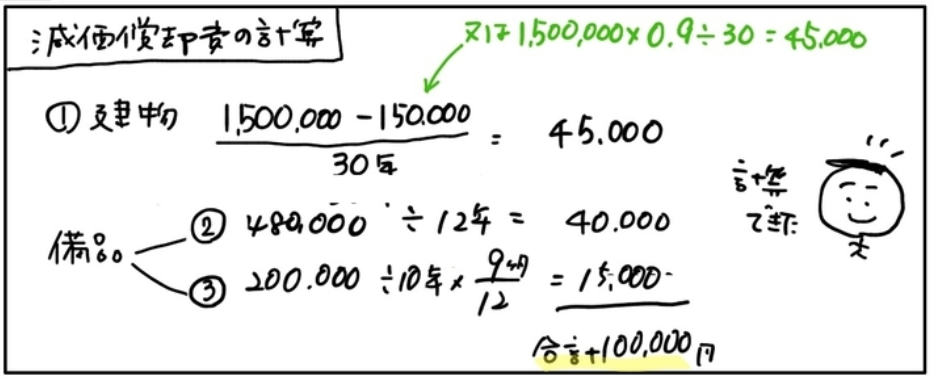 減価償却費の計算
又は1,500,000×0.9÷30=45,000
①建物 1,500,000-150,000 / 30年 = 45,000
備品
②480,000÷12年=40,000
③200,000÷10年×9ヶ月/12=15,000
計算
できた
合計100,000円